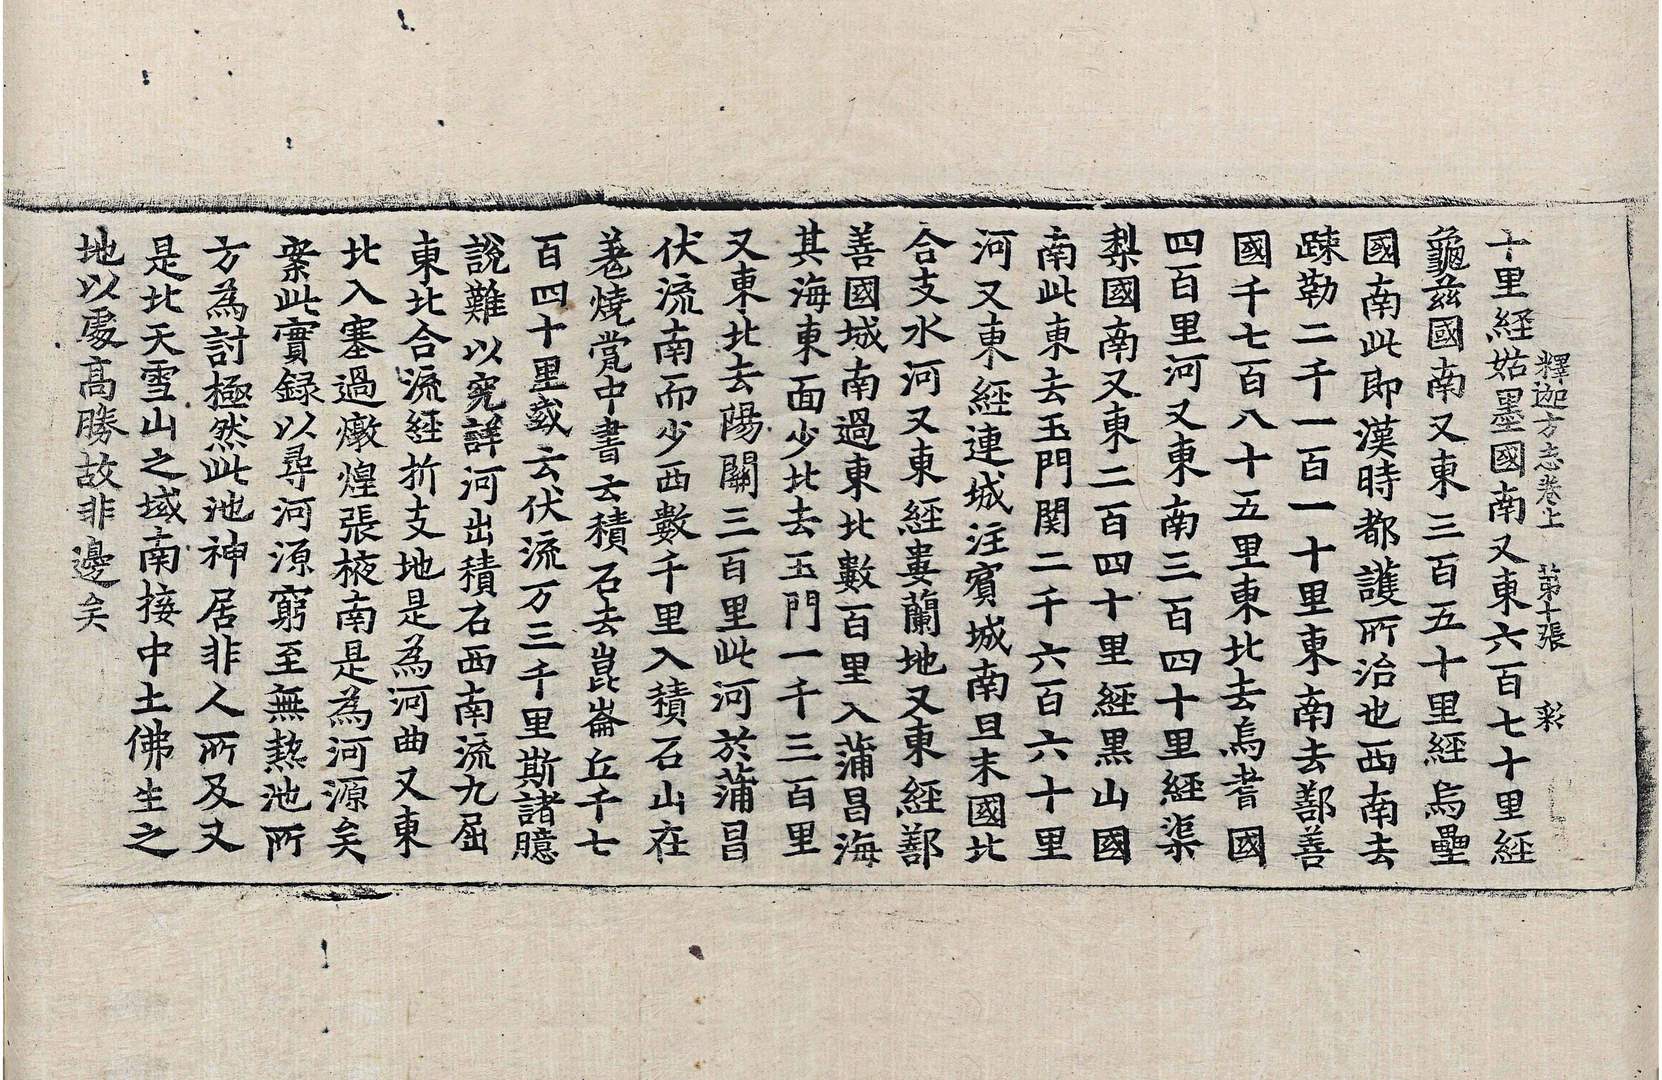 釋迦方志卷上　第十張　彩
十里經姑墨國南又東六百七十里經
龜茲國南又東三百五十里經烏壘
國南此即漢時都護所治也西南去
踈勒二千一百一十里東南去鄯善
國千七百八十五里東北去焉耆國
四百里河又東南三百四十里經渠
梨國南又東二百四十里經黒山國
南此東去玉門関二千六百六十里
河又東經連城注賔城南且末國北
合支水河又東經婁蘭地又東經鄯
善國城南過東北數百里入蒲昌海
其海東面少北去玉門一千三百里
又東北去陽關三百里此河於蒲昌
伏流南而少西數千里入積石山在
羗燒甍中書云積石去崑崙丘千七
百四十里或云伏流万三千里斯諸臆
說難以究詳河出積石西南流九屈
東北合流經折支地是為河曲又東
北入塞過燉煌張掖南是為河源矣
案此實録以尋河源窮至無熱池所
方為討極然此池神居非人所及又
是北天雪山之域南接中土佛生之
地以處高勝故非邊矣